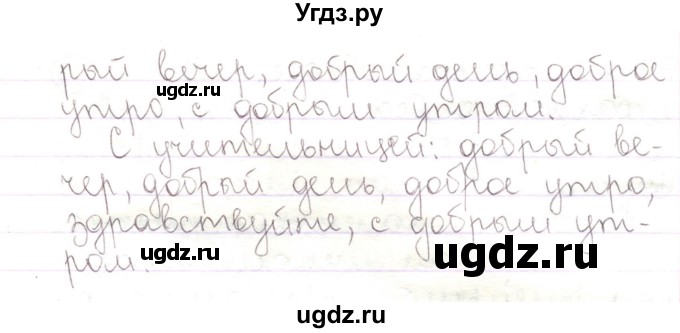 Угдз.ру
рый вечер, добрый день, доброе
ugdz.ru
ugdz.ru
утро, с добрым утром.
С учительницей: добрый ве-
чер, добрый день, доброе утро,
здравствуйте, с добрым ут-
ugdz.ru
ugdz.ru
ром.
ugdz.ru